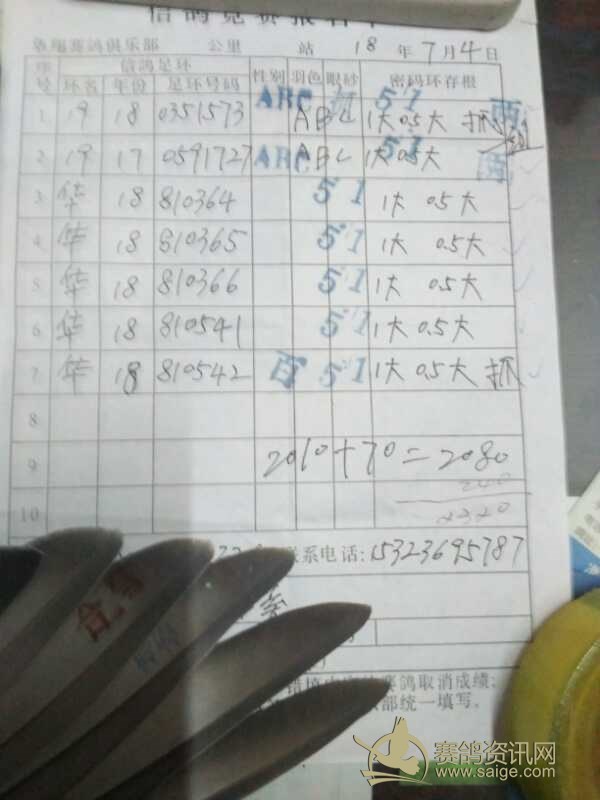 信鸽竞赛报名单
赛鸽俱乐部 公里 站 18 年 7 月 4 日
序号 信鸽足环 性别 羽色 眼砂 密码环存根
环名 年份 足环号码
1 19 18 0351573 ABC ABL 51 1大 05大 抓 两
2 19 17 0591727 ABC ABL 51 1大 05大 两
3 华 18 810364 51 1大 05大
4 华 18 810365 51 1大 0.5大
5 华 18 810366 51 1大 0.5大
6 华 18 810541 51 1大 0.5大
7 华 18 810542 百 51 1大 05大 抓
8
9 2010+70=2080
240
10 2320
联系电话:15323695787
赛鸽取消成绩;
部统一填写。
赛鸽资讯网
www.saige.com